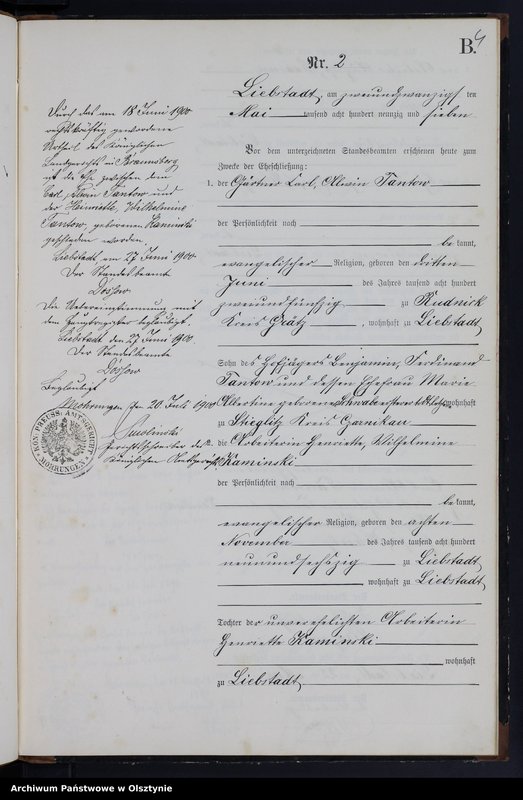 B.
4
Nr. 2
Liebstadt, am zweiundzwanzigsten
Mai tausend acht hundert neunzig und sieben
Vor dem unterzeichneten Standesbeamten erschienen heute zum
Zwecke der Eheschließung:
1. der Gärtner Carl, Albin Tantow
der Persönlichkeit nach
bekannt,
evangelischer Religion, geboren den dritten
Juni des Jahres tausend acht hundert
zweiundfünfzig zu Rudnick
Kreis Grätz, wohnhaft zu Liebstadt
Sohn des Hofjägers Benjamin, Ferdinand
Tantow und dessen Ehefrau Marie
Albertine geborene wohnhaft
zu Stieglitz Kreis Czarnikau
2. die Arbeiterin Henriette, Wilhelmine
Kaminski
der Persönlichkeit nach
bekannt,
evangelischer Religion, geboren den achten
November des Jahres tausend acht hundert
neunundsechszig zu Liebstadt
wohnhaft zu Liebstadt
Tochter der unverehelichten Arbeiterin
Henriette Kaminski
wohnhaft
zu Liebstadt
Durch das am 18 Juni 1900
rechtskräftig gewordene
Urtheil des Königlichen
Landgerichts in Braunsberg
ist die Ehe zwischen dem
Carl, Tantow und
der Henriette, Wilhelmine
Tantow, geborenen Kaminski
geschieden worden
Liebstadt am 27 Juni 1900.
Der Standesbeamte
Dossow
Die Uebereinstimmung mit
dem Hauptregister beglaubigt.
Liebstadt den 27 Juni 1900
Der Standesbeamte
Dossow
Beglaubigt
Mohrungen, den 20 Juli 1900
Gerichtsschreiber des
Königlichen Amtsgerichts
KÖN. PREUSS. AMTSGERICHT
MOHRUNGEN
Archiwum Państwowe w Olsztynie